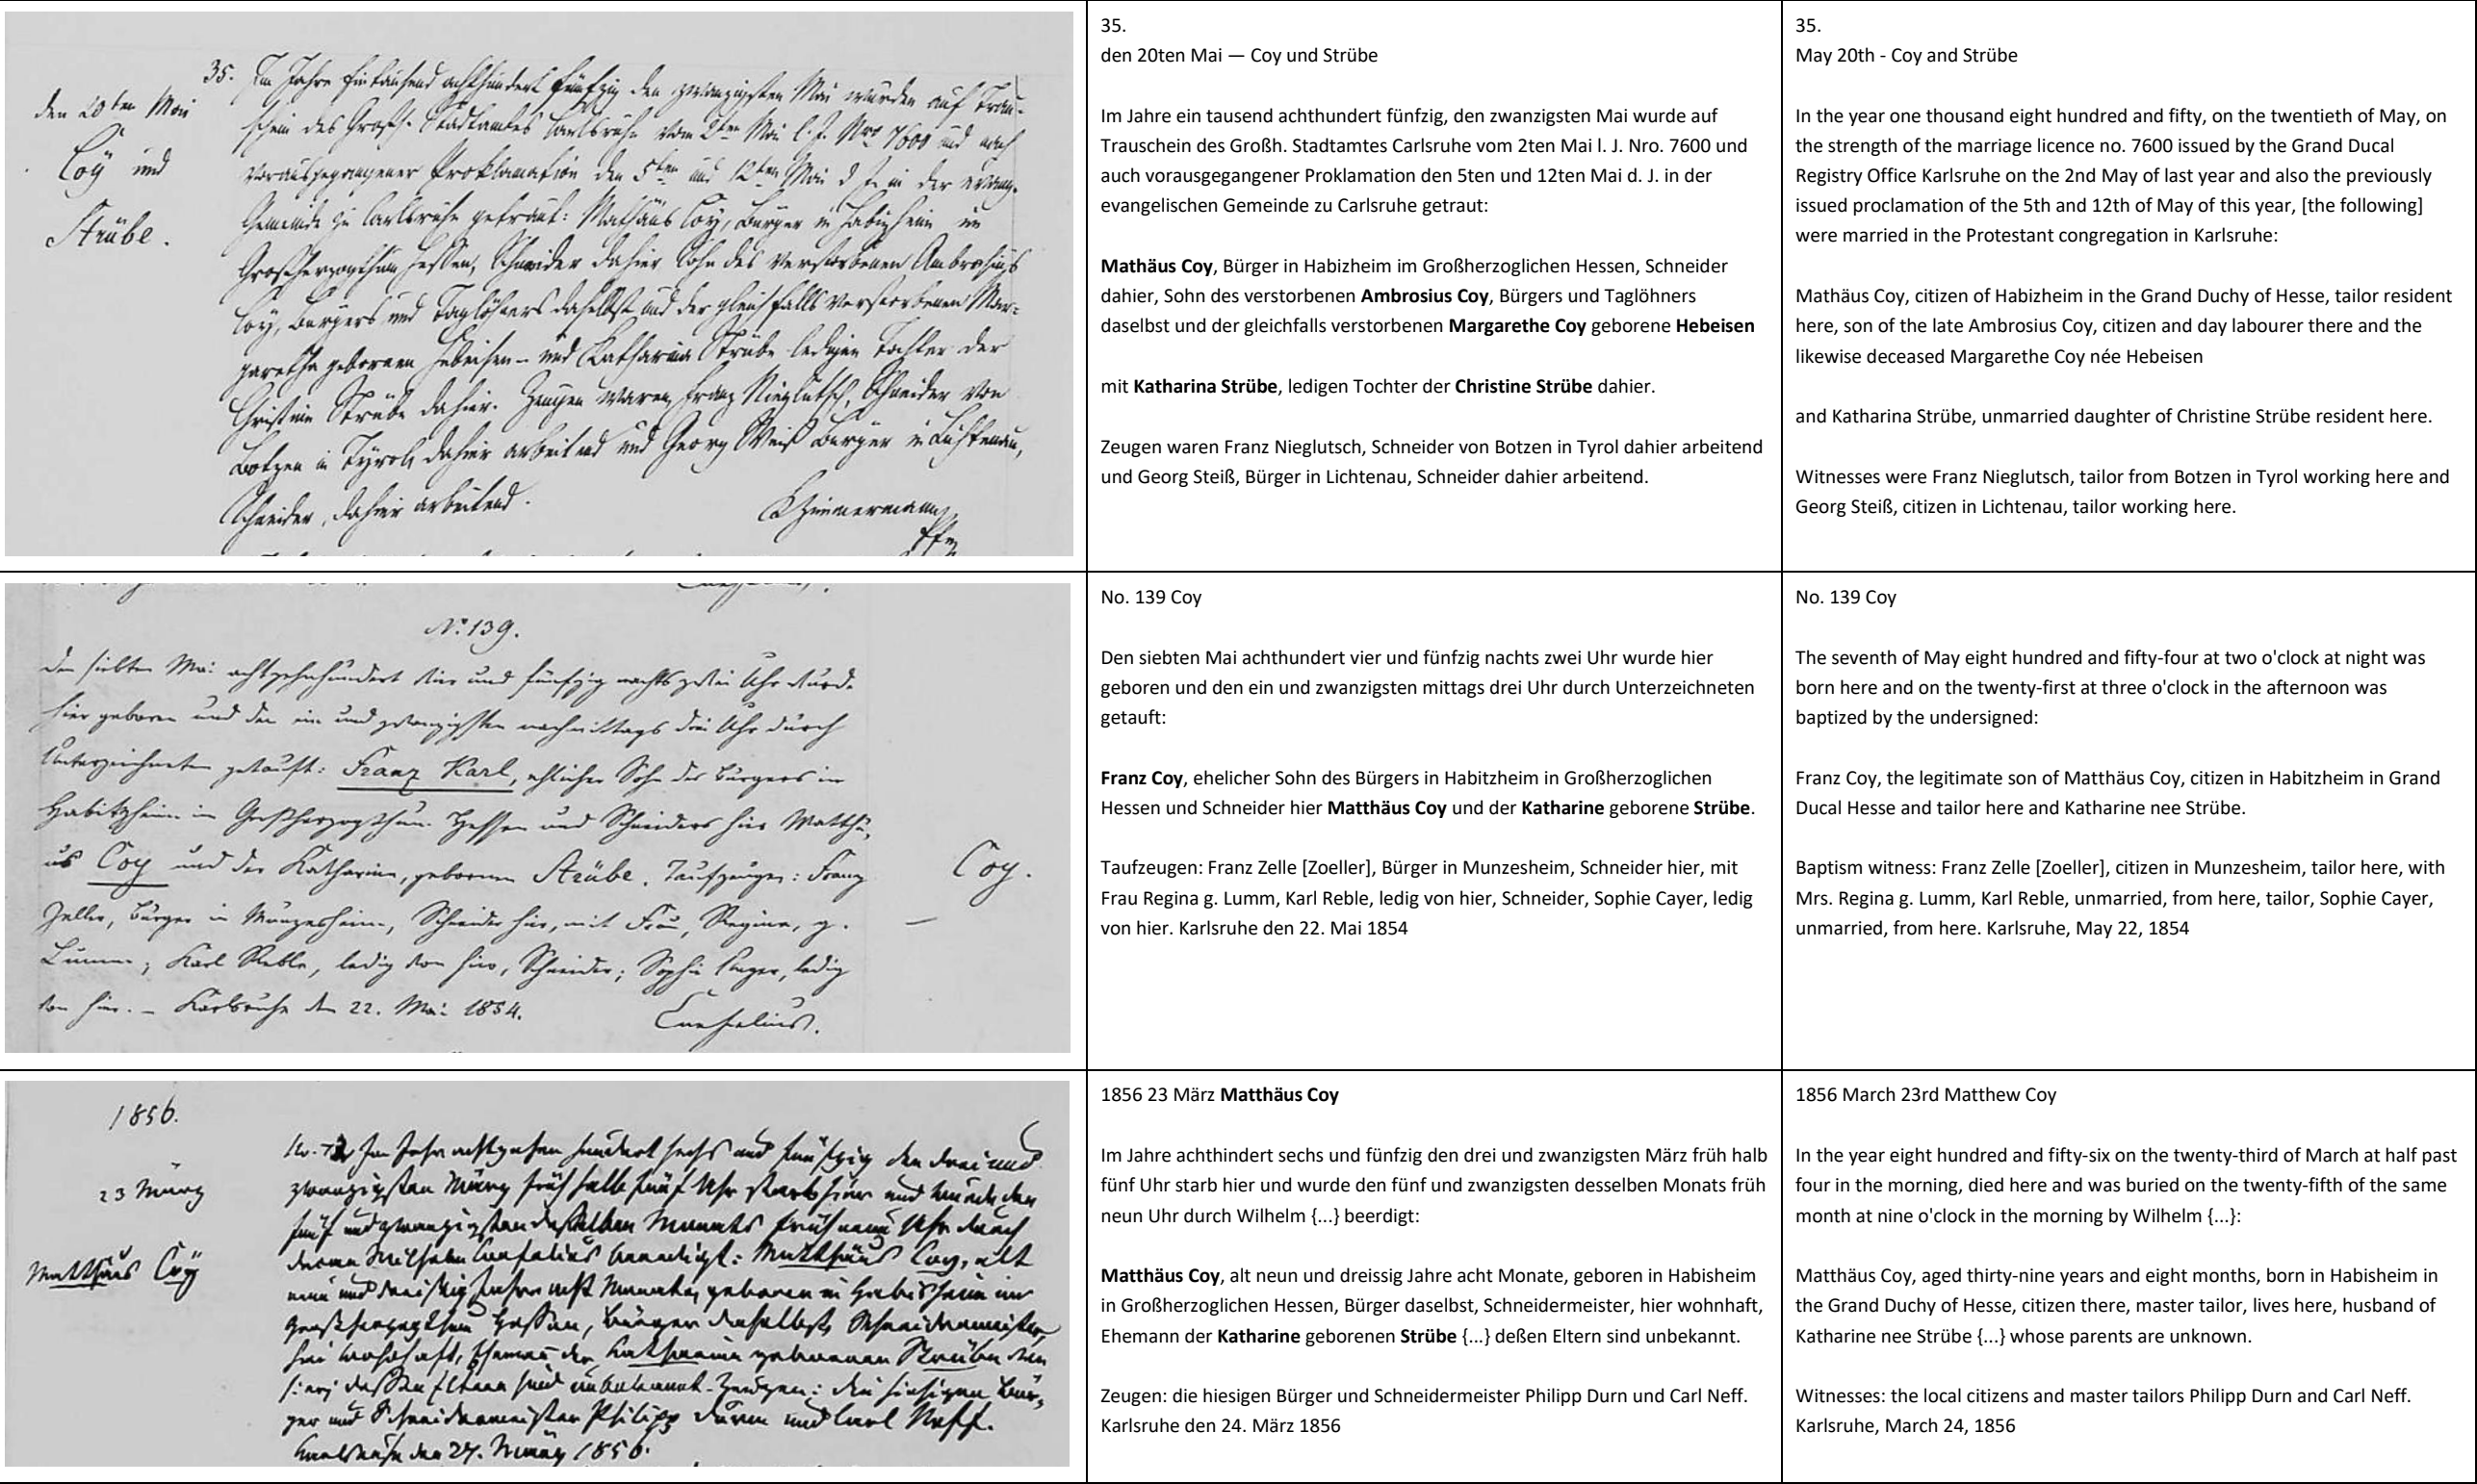 35.
den 20ten Mai
Coÿ und
Strübe.
Im Jahre Eintausend achthundert fünfzig den zwanzigsten Mai wurden auf Trau-
schein des Großh. Stadtamtes Carlsruhe vom 2ten Mai l. J. Nro 7600 und nach
vorausgegangener Proklamation den 5ten und 12ten Mai d. J. in der evang.
Gemeinde zu Carlsruhe getraut: Mathäus Coÿ, Bürger in Habizheim im
Großherzogthum Hessen, Schneider dahier, Sohn des verstorbenen Ambrosius
Coÿ, Bürgers und Taglöhners daselbst und der gleichfalls verstorbenen Mar-
garetha geborenen Hebeisen – und Katharina Strübe ledigen Tochter der
Christine Strübe dahier. Zeugen waren Franz Nieglutsch, Schneider von
Botzen in Tyrol, dahier arbeitend und Georg Weiß Bürger in Lichtenau,
Schneider, dahier arbeitend.
Zimmermann
35.
den 20ten Mai — Coy und Strübe
Im Jahre ein tausend achthundert fünfzig, den zwanzigsten Mai wurde auf
Trauschein des Großh. Stadtamtes Carlsruhe vom 2ten Mai l. J. Nro. 7600 und
auch vorausgegangener Proklamation den 5ten und 12ten Mai d. J. in der
evangelischen Gemeinde zu Carlsruhe getraut:
Mathäus Coy, Bürger in Habizheim im Großherzoglichen Hessen, Schneider
dahier, Sohn des verstorbenen Ambrosius Coy, Bürgers und Taglöhners
daselbst und der gleichfalls verstorbenen Margarethe Coy geborene Hebeisen
mit Katharina Strübe, ledigen Tochter der Christine Strübe dahier.
Zeugen waren Franz Nieglutsch, Schneider von Botzen in Tyrol dahier arbeitend
und Georg Steiß, Bürger in Lichtenau, Schneider dahier arbeitend.
35.
May 20th - Coy and Strübe
In the year one thousand eight hundred and fifty, on the twentieth of May, on
the strength of the marriage licence no. 7600 issued by the Grand Ducal
Registry Office Karlsruhe on the 2nd May of last year and also the previously
issued proclamation of the 5th and 12th of May of this year, [the following]
were married in the Protestant congregation in Karlsruhe:
Mathäus Coy, citizen of Habizheim in the Grand Duchy of Hesse, tailor resident
here, son of the late Ambrosius Coy, citizen and day labourer there and the
likewise deceased Margarethe Coy née Hebeisen
and Katharina Strübe, unmarried daughter of Christine Strübe resident here.
Witnesses were Franz Nieglutsch, tailor from Botzen in Tyrol working here and
Georg Steiß, citizen in Lichtenau, tailor working here.
No. 139.
Den siebten Mai achtzehnhundert vier und fünfzig nachts zwei Uhr wurde
hier geboren und den ein und zwanzigsten nachmittags drei Uhr durch
Unterzeichneten getauft: Franz Karl, ehlicher Sohn des Bürgers in
Habitzheim im Großherzogthum Hessen und Schneiders hier Matthä-
us Coy und der Katharine, geborenen Strübe. Taufzeugen: Franz
Zeller, Bürger in Munzesheim, Schneider hier, mit Frau, Regina, g.
Lumm; Karl Reble, ledig von hier, Schneider; Sophie Cayer, ledig
von hier. – Karlsruhe den 22. Mai 1854.
Coy.
No. 139 Coy
Den siebten Mai achthundert vier und fünfzig nachts zwei Uhr wurde hier
geboren und den ein und zwanzigsten mittags drei Uhr durch Unterzeichneten
getauft:
Franz Coy, ehelicher Sohn des Bürgers in Habitzheim in Großherzoglichen
Hessen und Schneider hier Matthäus Coy und der Katharine geborene Strübe.
Taufzeugen: Franz Zelle [Zoeller], Bürger in Munzesheim, Schneider hier, mit
Frau Regina g. Lumm, Karl Reble, ledig von hier, Schneider, Sophie Cayer, ledig
von hier. Karlsruhe den 22. Mai 1854
No. 139 Coy
The seventh of May eight hundred and fifty-four at two o'clock at night was
born here and on the twenty-first at three o'clock in the afternoon was
baptized by the undersigned:
Franz Coy, the legitimate son of Matthäus Coy, citizen in Habitzheim in Grand
Ducal Hesse and tailor here and Katharine nee Strübe.
Baptism witness: Franz Zelle [Zoeller], citizen in Munzesheim, tailor here, with
Mrs. Regina g. Lumm, Karl Reble, unmarried, from here, tailor, Sophie Cayer,
unmarried, from here. Karlsruhe, May 22, 1854
1856.
23 März
Matthäus Coÿ
Im Jahr achtzehen hundert sechs und fünfzig den drei und
zwanzigsten März früh halb fünf Uhr starb hier und wurde den
fünf und zwanzigsten desselben Monats früh neun Uhr durch
Wilhelm beerdigt: Matthäus Coy, alt
neun und dreissig Jahre acht Monate, geboren in Habisheim im
Großherzogthum Hessen, Bürger daselbst, Schneidermeister,
hier wohnhaft, Ehemann der Katharine geborenen Strübe von
hier; dessen Eltern sind unbekannt. Zeugen: die hiesigen Bür-
ger und Schneidermeister Philipp Durm und Carl Neff.
Karlsruhe den 24. März 1856.
1856 23 März Matthäus Coy
Im Jahre achthindert sechs und fünfzig den drei und zwanzigsten März früh halb
fünf Uhr starb hier und wurde den fünf und zwanzigsten desselben Monats früh
neun Uhr durch Wilhelm {...} beerdigt:
Matthäus Coy, alt neun und dreissig Jahre acht Monate, geboren in Habisheim
in Großherzoglichen Hessen, Bürger daselbst, Schneidermeister, hier wohnhaft,
Ehemann der Katharine geborenen Strübe {...} deßen Eltern sind unbekannt.
Zeugen: die hiesigen Bürger und Schneidermeister Philipp Durn und Carl Neff.
Karlsruhe den 24. März 1856
1856 March 23rd Matthew Coy
In the year eight hundred and fifty-six on the twenty-third of March at half past
four in the morning, died here and was buried on the twenty-fifth of the same
month at nine o'clock in the morning by Wilhelm {...}:
Matthäus Coy, aged thirty-nine years and eight months, born in Habisheim in
the Grand Duchy of Hesse, citizen there, master tailor, lives here, husband of
Katharine nee Strübe {...} whose parents are unknown.
Witnesses: the local citizens and master tailors Philipp Durn and Carl Neff.
Karlsruhe, March 24, 1856